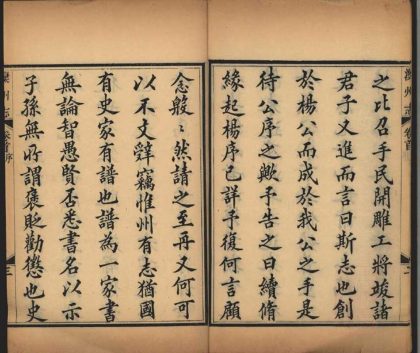 之比召手民開雕工將竣諸
君子又進而言曰斯志也創
於楊公而成於我公之手是
待公序之歟予告之曰續脩
緣起楊序已詳予復何言顧
念般〻然請之至再又何可
以不文辤竊惟州有志猶國
有史家有譜也譜為一家書
無論智愚賢否悉書名以示
子孫無所謂褒貶勸懲也史
州志
卷首序
三